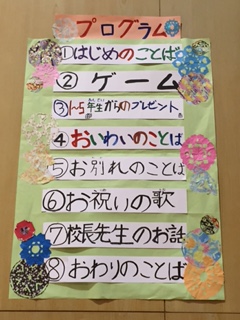 プログラム
①はじめのことば
②ゲーム
③1~5年生からのプレゼント
④おいわいのことば
⑤お別れのことば
⑥お祝いの歌
⑦校長先生のお話
⑧おわりのことば